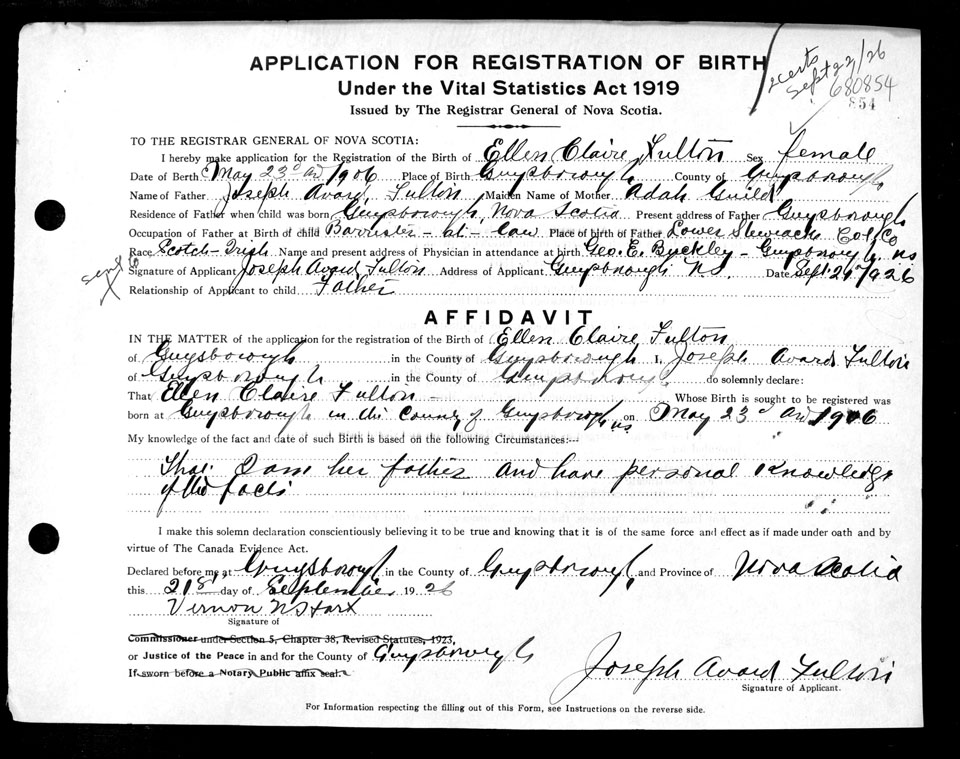 APPLICATION FOR REGISTRATION OF BIRTH
Under the Vital Statistics Act 1919
Issued by The Registrar General of Nova Scotia.
2 certs
Sept 22/26
680854
854
TO THE REGISTRAR GENERAL OF NOVA SCOTIA:
I hereby make application for the Registration of the Birth of Ellen Claire Fulton Sex female
Date of Birth May 23d AD 1906 Place of Birth Guysborough County of Guysborough
Name of Father Joseph Avard Fulton Maiden Name of Mother Adah Guild
Residence of Father when child was born Guysborough, Nova Scotia Present address of Father Guysborough
Occupation of Father at Birth of child Barrister-at-law Place of birth of Father Lower Stewiacke Col. Co
Race Scotch-Irish Name and present address of Physician in attendance at birth Geo. E. Buckley - Guysborough NS
Signature of Applicant Joseph Avard Fulton Address of Applicant Guysborough NS. Date Sept 21 1926
Relationship of Applicant to child Father
AFFIDAVIT
IN THE MATTER of the application for the registration of the Birth of Ellen Claire Fulton
of Guysborough in the County of Guysborough I, Joseph Avard Fulton
of Guysborough in the County of Guysborough do solemnly declare:
That Ellen Claire Fulton - Whose Birth is sought to be registered was
born at Guysborough in the County of Guysborough NS on May 23d AD 1906
My knowledge of the fact and date of such Birth is based on the following Circumstances:—
That I am her father and have personal knowledge
of the facts
I make this solemn declaration conscientiously believing it to be true and knowing that it is of the same force and effect as if made under oath and by
virtue of The Canada Evidence Act.
Declared before me at Guysborough in the County of Guysborough, and Province of Nova Scotia
this 21st day of September 1926
Vernon N Hart
Signature of
Commissioner under Section 5, Chapter 38, Revised Statutes, 1923,
or Justice of the Peace in and for the County of Guysborough
If sworn before a Notary Public affix seal.
Joseph Avard Fulton
Signature of Applicant.
For Information respecting the filling out of this Form, see Instructions on the reverse side.